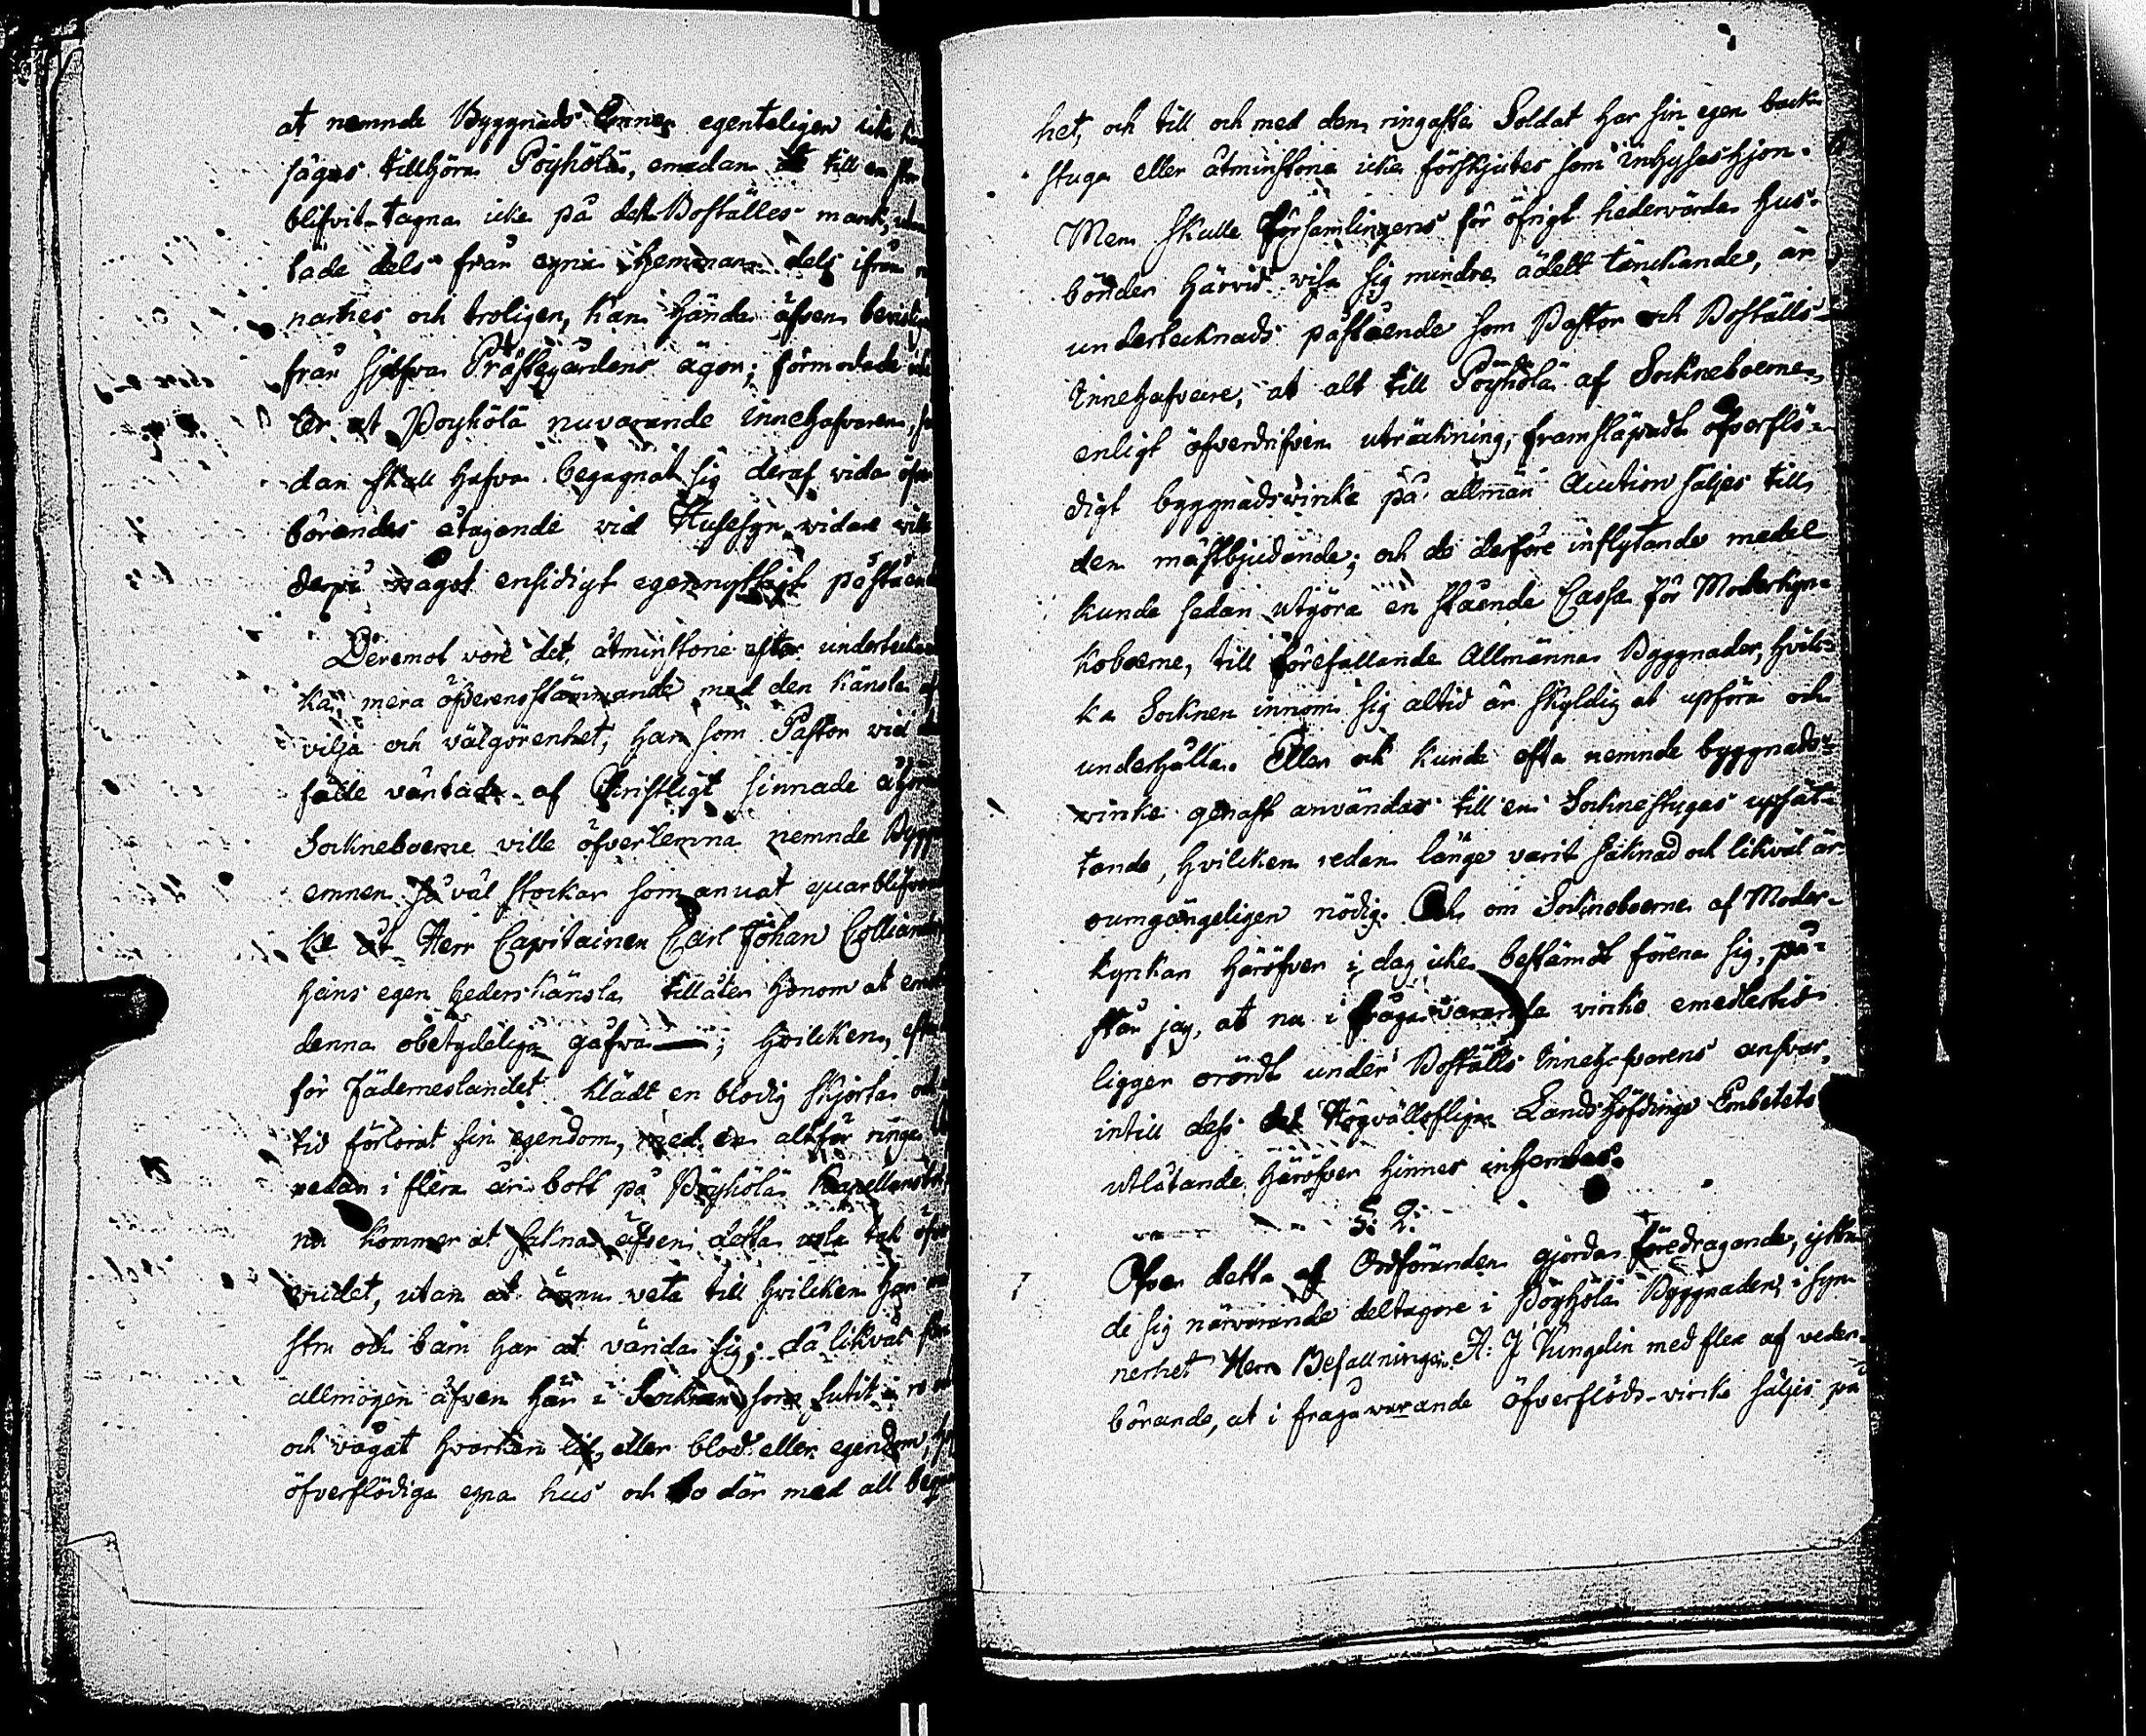 at nemnde Byggnads Emnen egenteligen icke
sägas tillhöra Pöyhölä, emedan de till en
blifvit tagna icke på dett Boställes mark,
dels från egna Hemman dels ifrån
och troligen, kan hända äfven
från sjelfva Prästegårdens ägor; förmodade
är at Pöyhölä nuvarande innehafvaren,
dan skall hafva begagnat sig deraf vida
börandes åtagande vid Husesyn widare
derpå något ensidigt egennyttigt påstående
Deremot vore det, åtminstone efter
ka, mera öfverensstämmande med den känsla af
vilja och välgörenhet, han som Pastor vid
fälle väntade af Christligt sinnade
Sockneboerne ville öfverlemna nemnde
emnen så väl stockar som annat quarblifvit
åt Herr Capitainen Carl Johan Colliander
hans egen hederskänsla tillåter honom at
denna obetydeliga gåfva; hvilcken,
för Fäderneslandet klädt en blodig skjorta och
tid förlorat sin egendom, med en altför ringa
redan i flera år bott på Pöyhölä
nu kommer at sakna äfven detta usla tak
vudet, utan at ännu veta till hvilcken han
stru och barn har at vända sig; då likväl
allmogen äfven här i Socknen som sutit i ro
och vågat hvarken lif, eller blod eller egendom,
öfverflödiga egna hus och bo där med all
het, och till och med den ringaste Soldat har sin egen
stuga eller åtminstone icke förskjutes som inhyseshjon.
Men skulle Församlingens för öfrigt hedervärda Hus-
bönder härvid visa sig mindre ädelt tänckande, är
undertecknads påstående som Pastor och Boställs
Innehafvare, at alt till Pöyhölä af Sockneboerne,
enligt öfverdrifven uträckning, framsläpadt öfverflö-
digt byggnadsvirke på allmän Auction säljes till
den mästbjudande; och de derföre inflytande medel
kunde sedan utgöra en stående Cassa för Moderkyr-
koboerne, till förefallande Allmänna Byggnader, hvil-
ka Socknen innom sig altid är skyldig at upföra och
underhålla. Eller ock kunde ofta nemnde byggnads-
virke genast användas till en Socknestugas upsät-
tande, hvilcken redan länge varit saknad och likväl är
oumgängeligen nödig. Och om Sockneboerne af Moder-
kyrkan häröfver i dag icke bestämdt förena sig, på-
står jag, at nu i fråga varande virke emedlertid
ligger orördt under Boställs Innehafvarens ansvar,
intill dess det Högvälloflige Landshöfdinge Embetets
utlåtande häröfver hinner inhemtas.
§. 2.
Öfver detta af Ordföranden gjorda föredragande, yttra-
de sig närvarande deltagare i Pöyhölä Byggnaden, i syn-
nerhet Herr Befallningsm. A: J Kungelin med flera af veder-
börande, at i fråga varande öfverflöds-virke säljes på